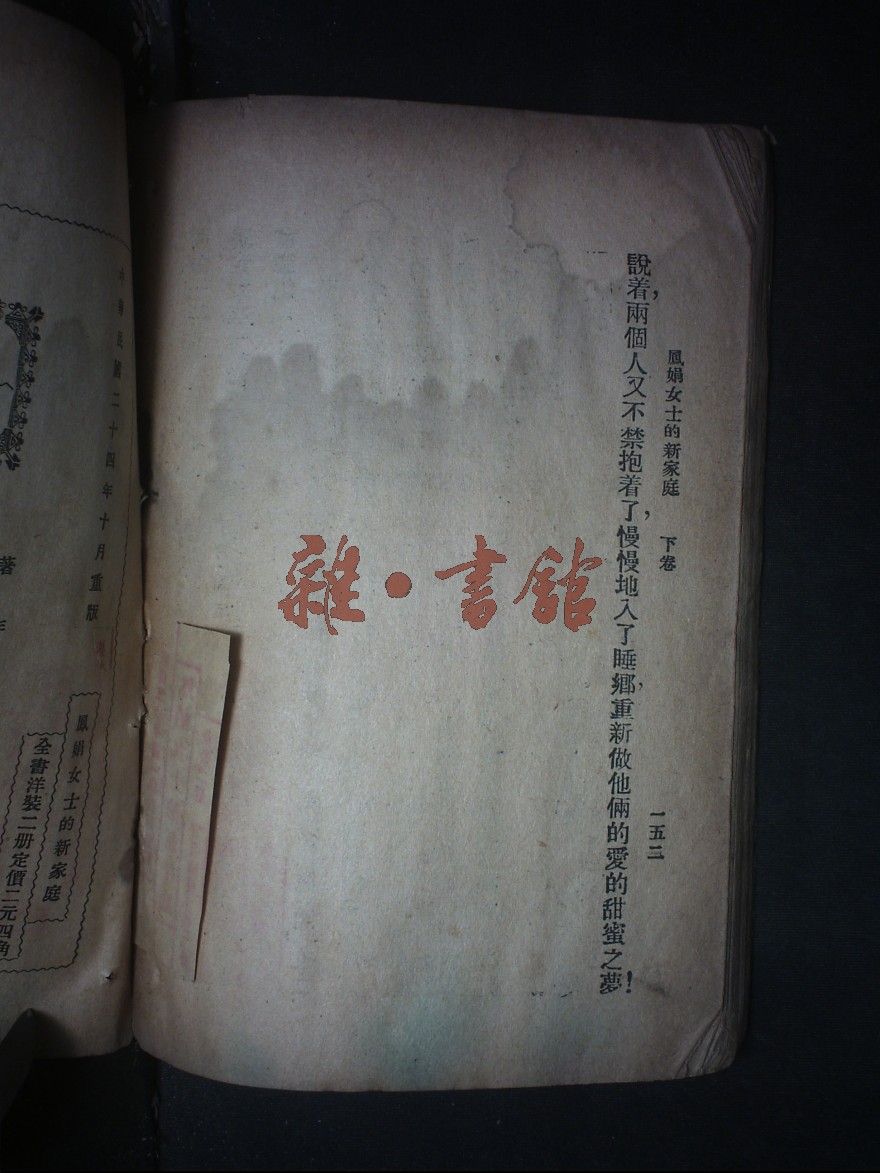 鳳娟女士的新家庭　下卷
一五二
說着，兩個人又不禁抱着了，慢慢地入了睡鄉，重新做他倆的愛的甜蜜之夢！
雜·書館
中華民國二十四年十月重版
鳳娟女士的新家庭
全書洋裝二册定價二元四角
著